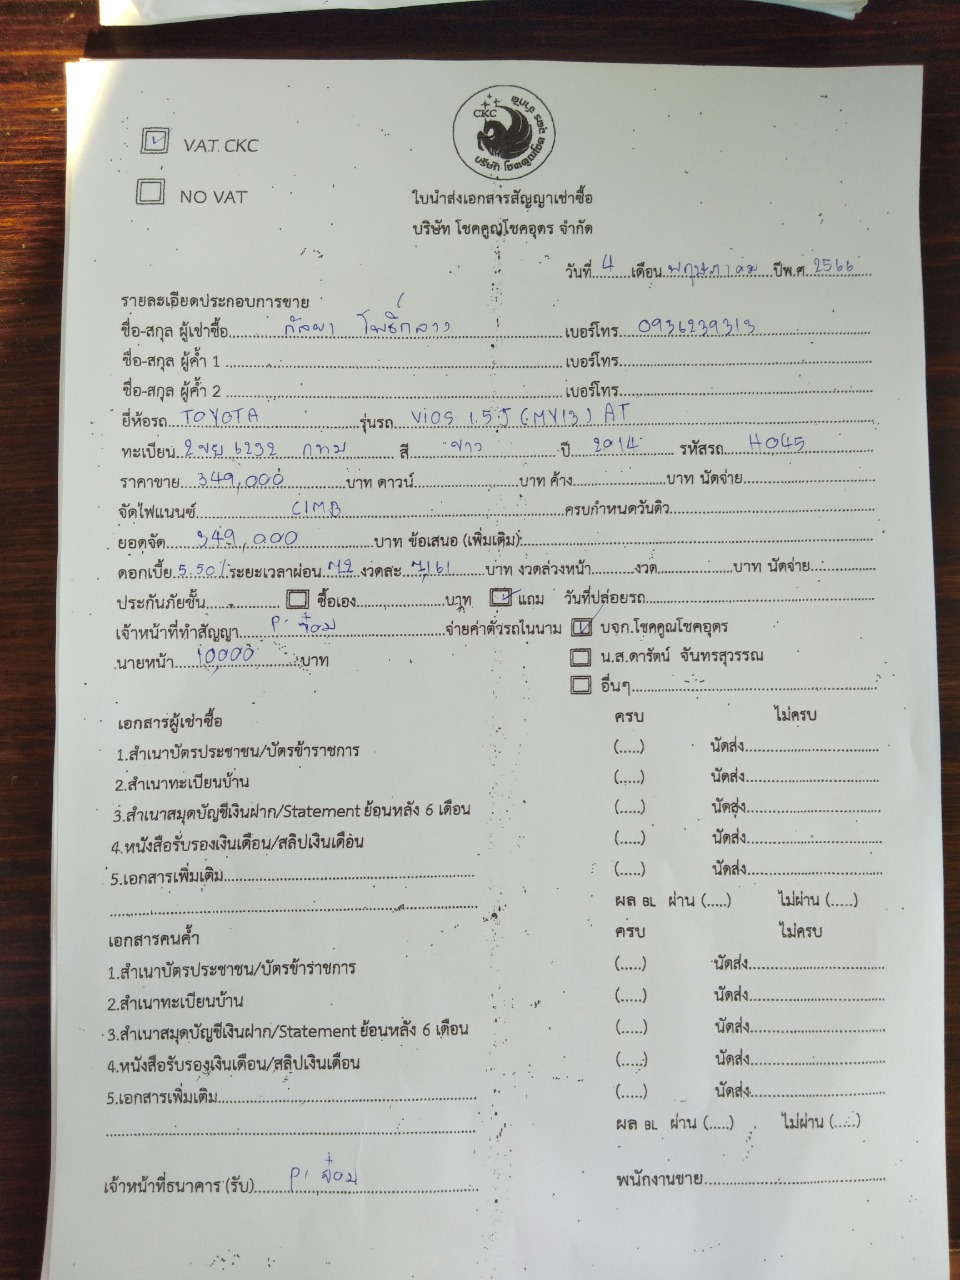 CKC
บริษัท โชคคูณโชคอุดร จำกัด
VAT CKC
NO VAT
ใบนำส่งเอกสารสัญญาเช่าซื้อ
บริษัท โชคคูณโชคอุดร จำกัด
วันที่ 4 เดือน พฤษภาคม ปีพ.ศ. 2566
รายละเอียดประกอบการขาย
ชื่อ-สกุล ผู้เช่าซื้อ กัลยา โพธิ์กลาง เบอร์โทร 0936239313
ชื่อ-สกุล ผู้ค้ำ 1 เบอร์โทร
ชื่อ-สกุล ผู้ค้ำ 2 เบอร์โทร
ยี่ห้อรถ TOYOTA รุ่นรถ VIOS 1.5 J (MY13) AT
ทะเบียน 2ขย 6232 กทม สี ขาว ปี 2014 รหัสรถ H045
ราคาขาย 349,000 บาท ดาวน์ บาท ค้าง บาท นัดจ่าย
จัดไฟแนนซ์ CIMB ครบกำหนดวันดิว
ยอดจัด 349,000 บาท ข้อเสนอ (เพิ่มเติม):
ดอกเบี้ย 5.50% ระยะเวลาผ่อน 72 งวดละ 7,161 บาท งวดล่วงหน้า งวด บาท นัดจ่าย
ประกันภัยชั้น ซื้อเอง บาท แถม วันที่ปล่อยรถ
เจ้าหน้าที่ทำสัญญา P' จ๋อม จ่ายค่าตัวรถในนาม บจก.โชคคูณโชคอุดร
นายหน้า 10000 บาท น.ส.ดารัตน์ จันทรสุวรรณ
อื่นๆ
เอกสารผู้เช่าซื้อ ครบ ไม่ครบ
1.สำเนาบัตรประชาชน/บัตรข้าราชการ (.....) นัดส่ง
2.สำเนาทะเบียนบ้าน (.....) นัดส่ง
3.สำเนาสมุดบัญชีเงินฝาก/Statement ย้อนหลัง 6 เดือน (.....) นัดส่ง
4.หนังสือรับรองเงินเดือน/สลิปเงินเดือน (.....) นัดส่ง
5.เอกสารเพิ่มเติม (.....) นัดส่ง
ผล BL ผ่าน (.....) ไม่ผ่าน (.....)
เอกสารคนค้ำ ครบ ไม่ครบ
1.สำเนาบัตรประชาชน/บัตรข้าราชการ (.....) นัดส่ง
2.สำเนาทะเบียนบ้าน (.....) นัดส่ง
3.สำเนาสมุดบัญชีเงินฝาก/Statement ย้อนหลัง 6 เดือน (.....) นัดส่ง
4.หนังสือรับรองเงินเดือน/สลิปเงินเดือน (.....) นัดส่ง
5.เอกสารเพิ่มเติม (.....) นัดส่ง
ผล BL ผ่าน (.....) ไม่ผ่าน (.....)
เจ้าหน้าที่ธนาคาร (รับ) P' จ๋อม พนักงานขาย